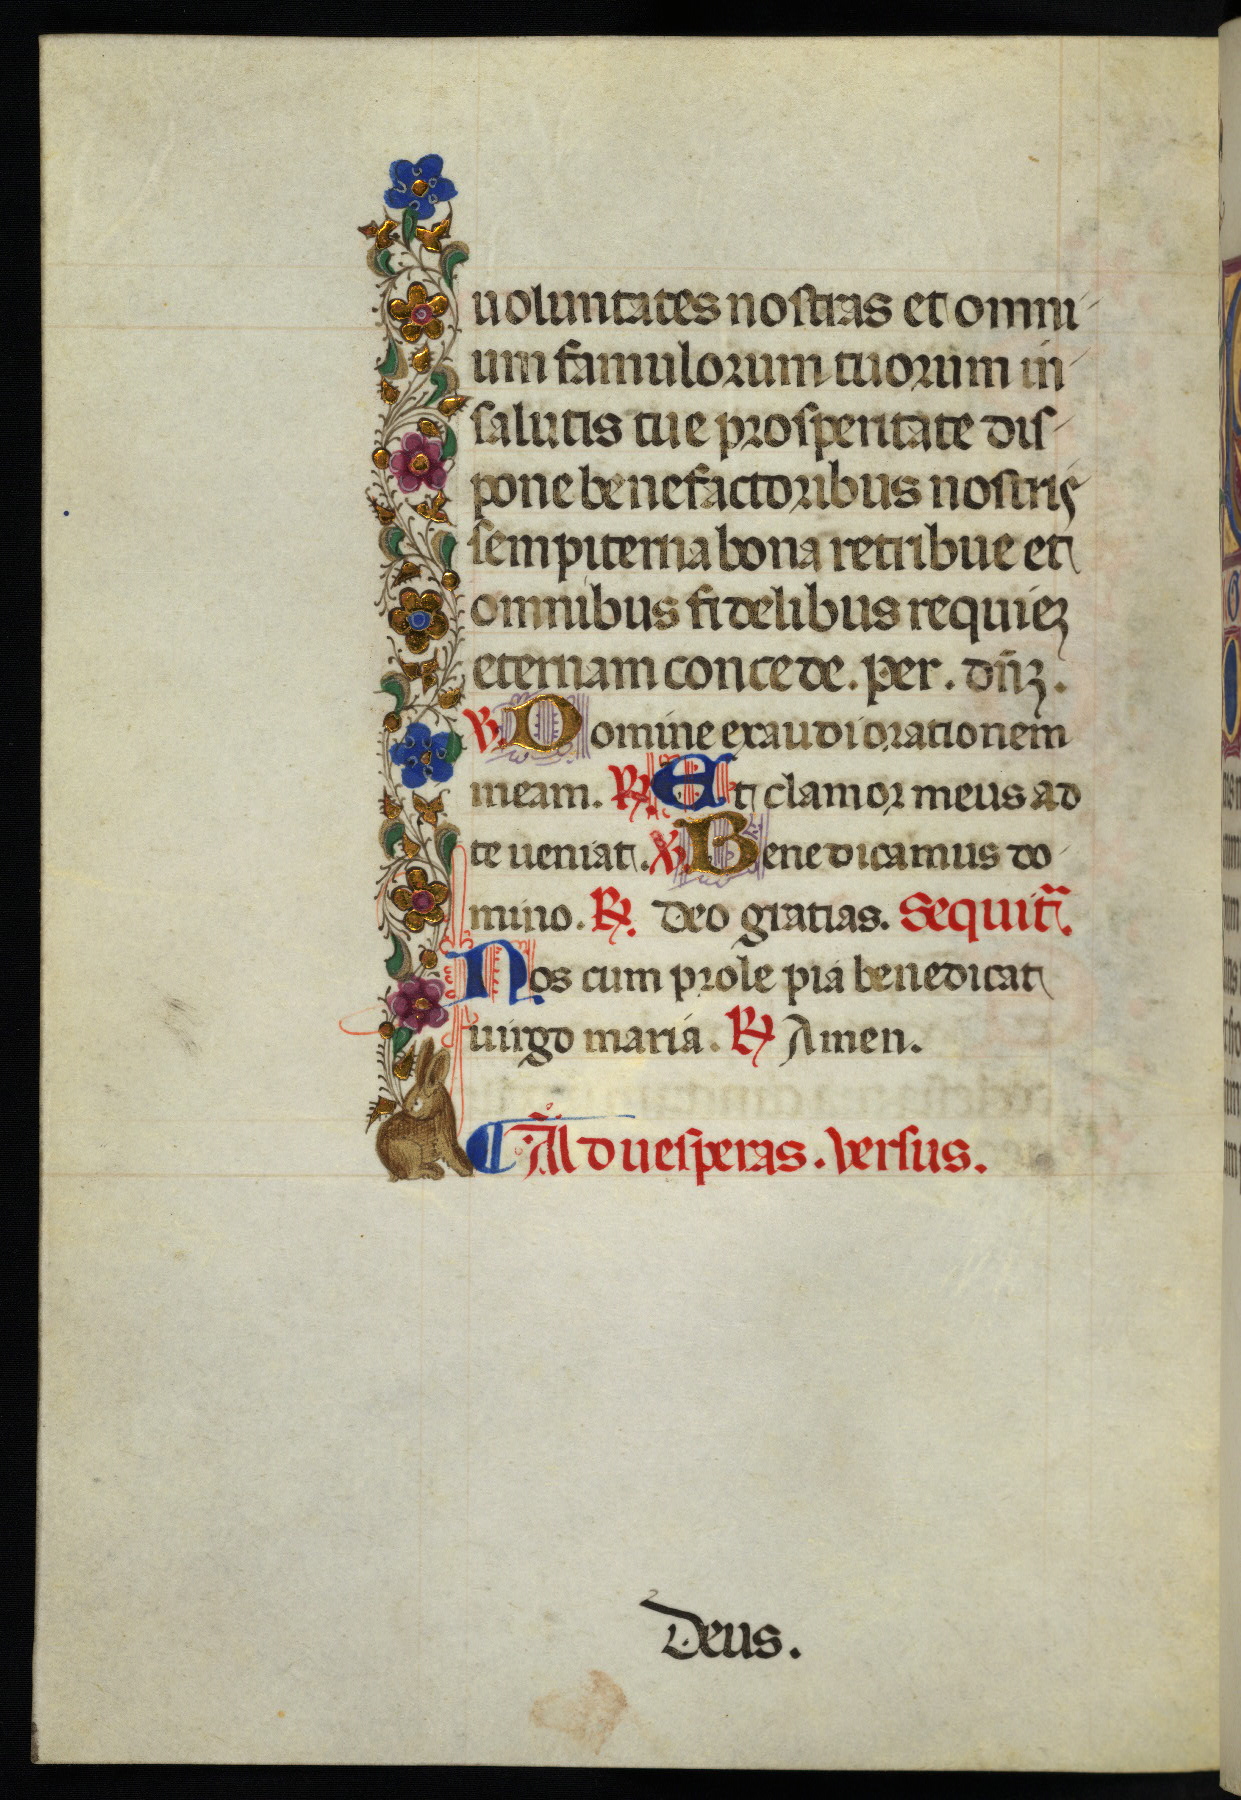 uoluntates nostras et omni
um famulorum tuorum in
salutis tue prosperitate dis
pone benefactoribus nostris
sempiterna bona retribue et
omnibus fidelibus requiez
eternam concede. per. dn̄z.
℣. Domine exaudi orationem
meam. ℟. Et clamor meus ad
te ueniat. ℣. Benedicamus do
mino. ℟. Deo gratias. Sequit̃.
Nos cum prole pia benedicat
uirgo maria. ℟ Amen.
Ad uesperas. Versus.
Deus.